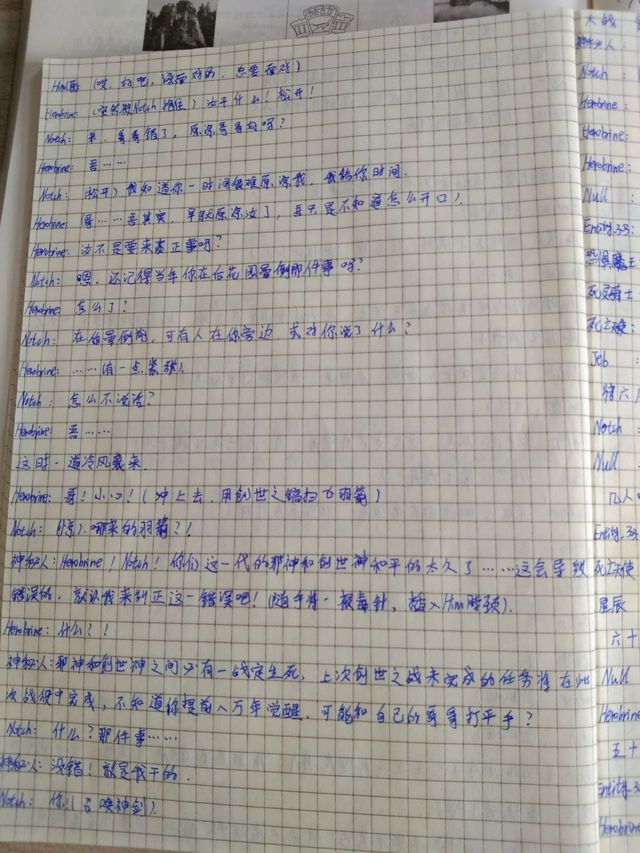 Him: (哎，好吧，该面对的，总要面对)
Herobrine: (突然被Notch抱住) 汝干什么！松开！
Notch: 来，哥哥错了，原谅哥哥好吗？
Herobrine: 吾……
Notch: (松开) 我知道你一时间很难原谅我，我给你时间.
Herobrine: 哥……吾其实，早就原谅汝了，吾只是不知道怎么开口).
Herobrine: 汝不是要来有正事吗？
Notch: 嗯，还记得当年你在后花园晕倒那件事吗？
Herobrine: 怎么了？
Notch: 在你晕倒前，可有人在你旁边 或对你说了什么？
Herobrine: ……(有一点紧张).
Notch: 怎么不说话？
Herobrine: 吾……
这时一道冷风袭来.
Herobrine: 哥！小心！(冲上去，用创世之镐扫飞羽箭)
Notch: (惊). 哪来的羽箭？！
神秘人: Herobrine！Notch！你们这一代的邪神和创世神和平的太久了……这会导致
错误的，就让我来纠正这一错误吧！(随手将一根毒针，插入Him脖颈).
Herobrine: 什么？！
神秘人: 邪神和创世神之间必有一战定生死，上次创世之战未完成的任务将在此
次战役中完成，不知道你提前八万年觉醒，可能和自己的哥哥打平手？
Notch: 什么？那件事……
神秘人: 没错！就是我干的.
Notch: 你！(召唤神剑).
大战
神秘人:
Notch:
Herobrine:
Herobrine:
Herobrine:
Null:
Entity.33:
恐惧魔王
死灵骑士
死亡天使:
Job:
Notch:
Null
几人
Entity.33
死亡天使
星辰
六十
Null
Herobrine
五十
Entity.33
Herobrine